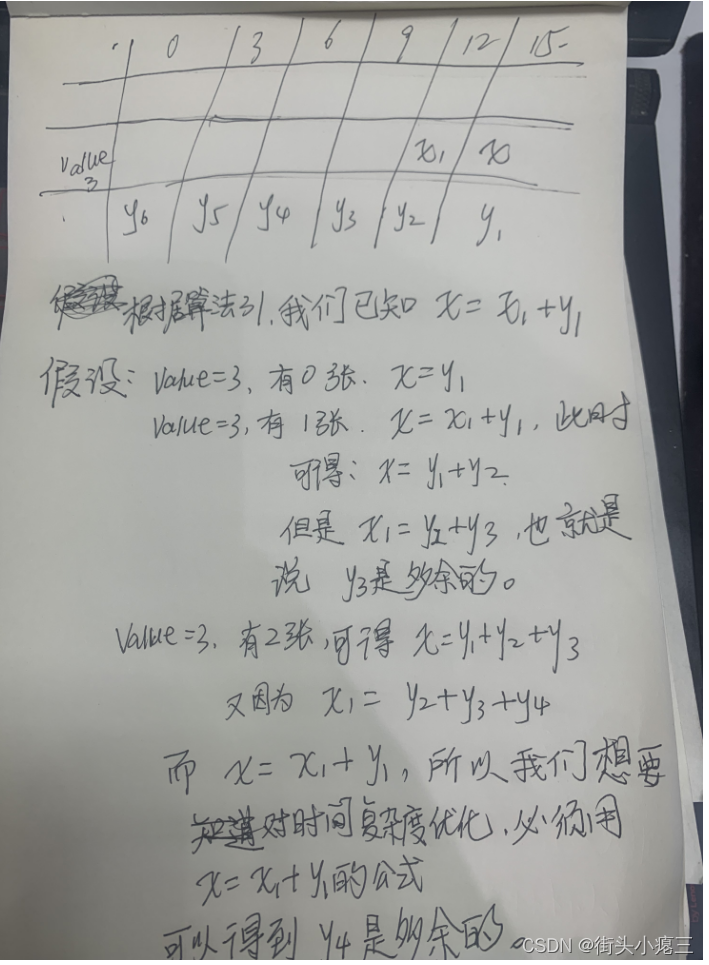 · 0 3 6 9 12 15
value 3 x₁ x
· y₆ y₅ y₄ y₃ y₂ y₁
根据算法31，我们已知 x = x₁ + y₁
假设：value=3，有0张. x=y₁
value=3，有1张. x=x₁+y₁，此时
可得：x=y₁+y₂.
但是 x₁=y₂+y₃，也就是
说 y₃是多余的。
value=3，有2张，可得 x=y₁+y₂+y₃
又因为 x₁= y₂+y₃+y₄
而 x = x₁ + y₁，所以我们想要
对时间复杂度优化，必须用
x=x₁+y₁的公式
可以得到 y₄是多余的。
CSDN @街头小瘪三